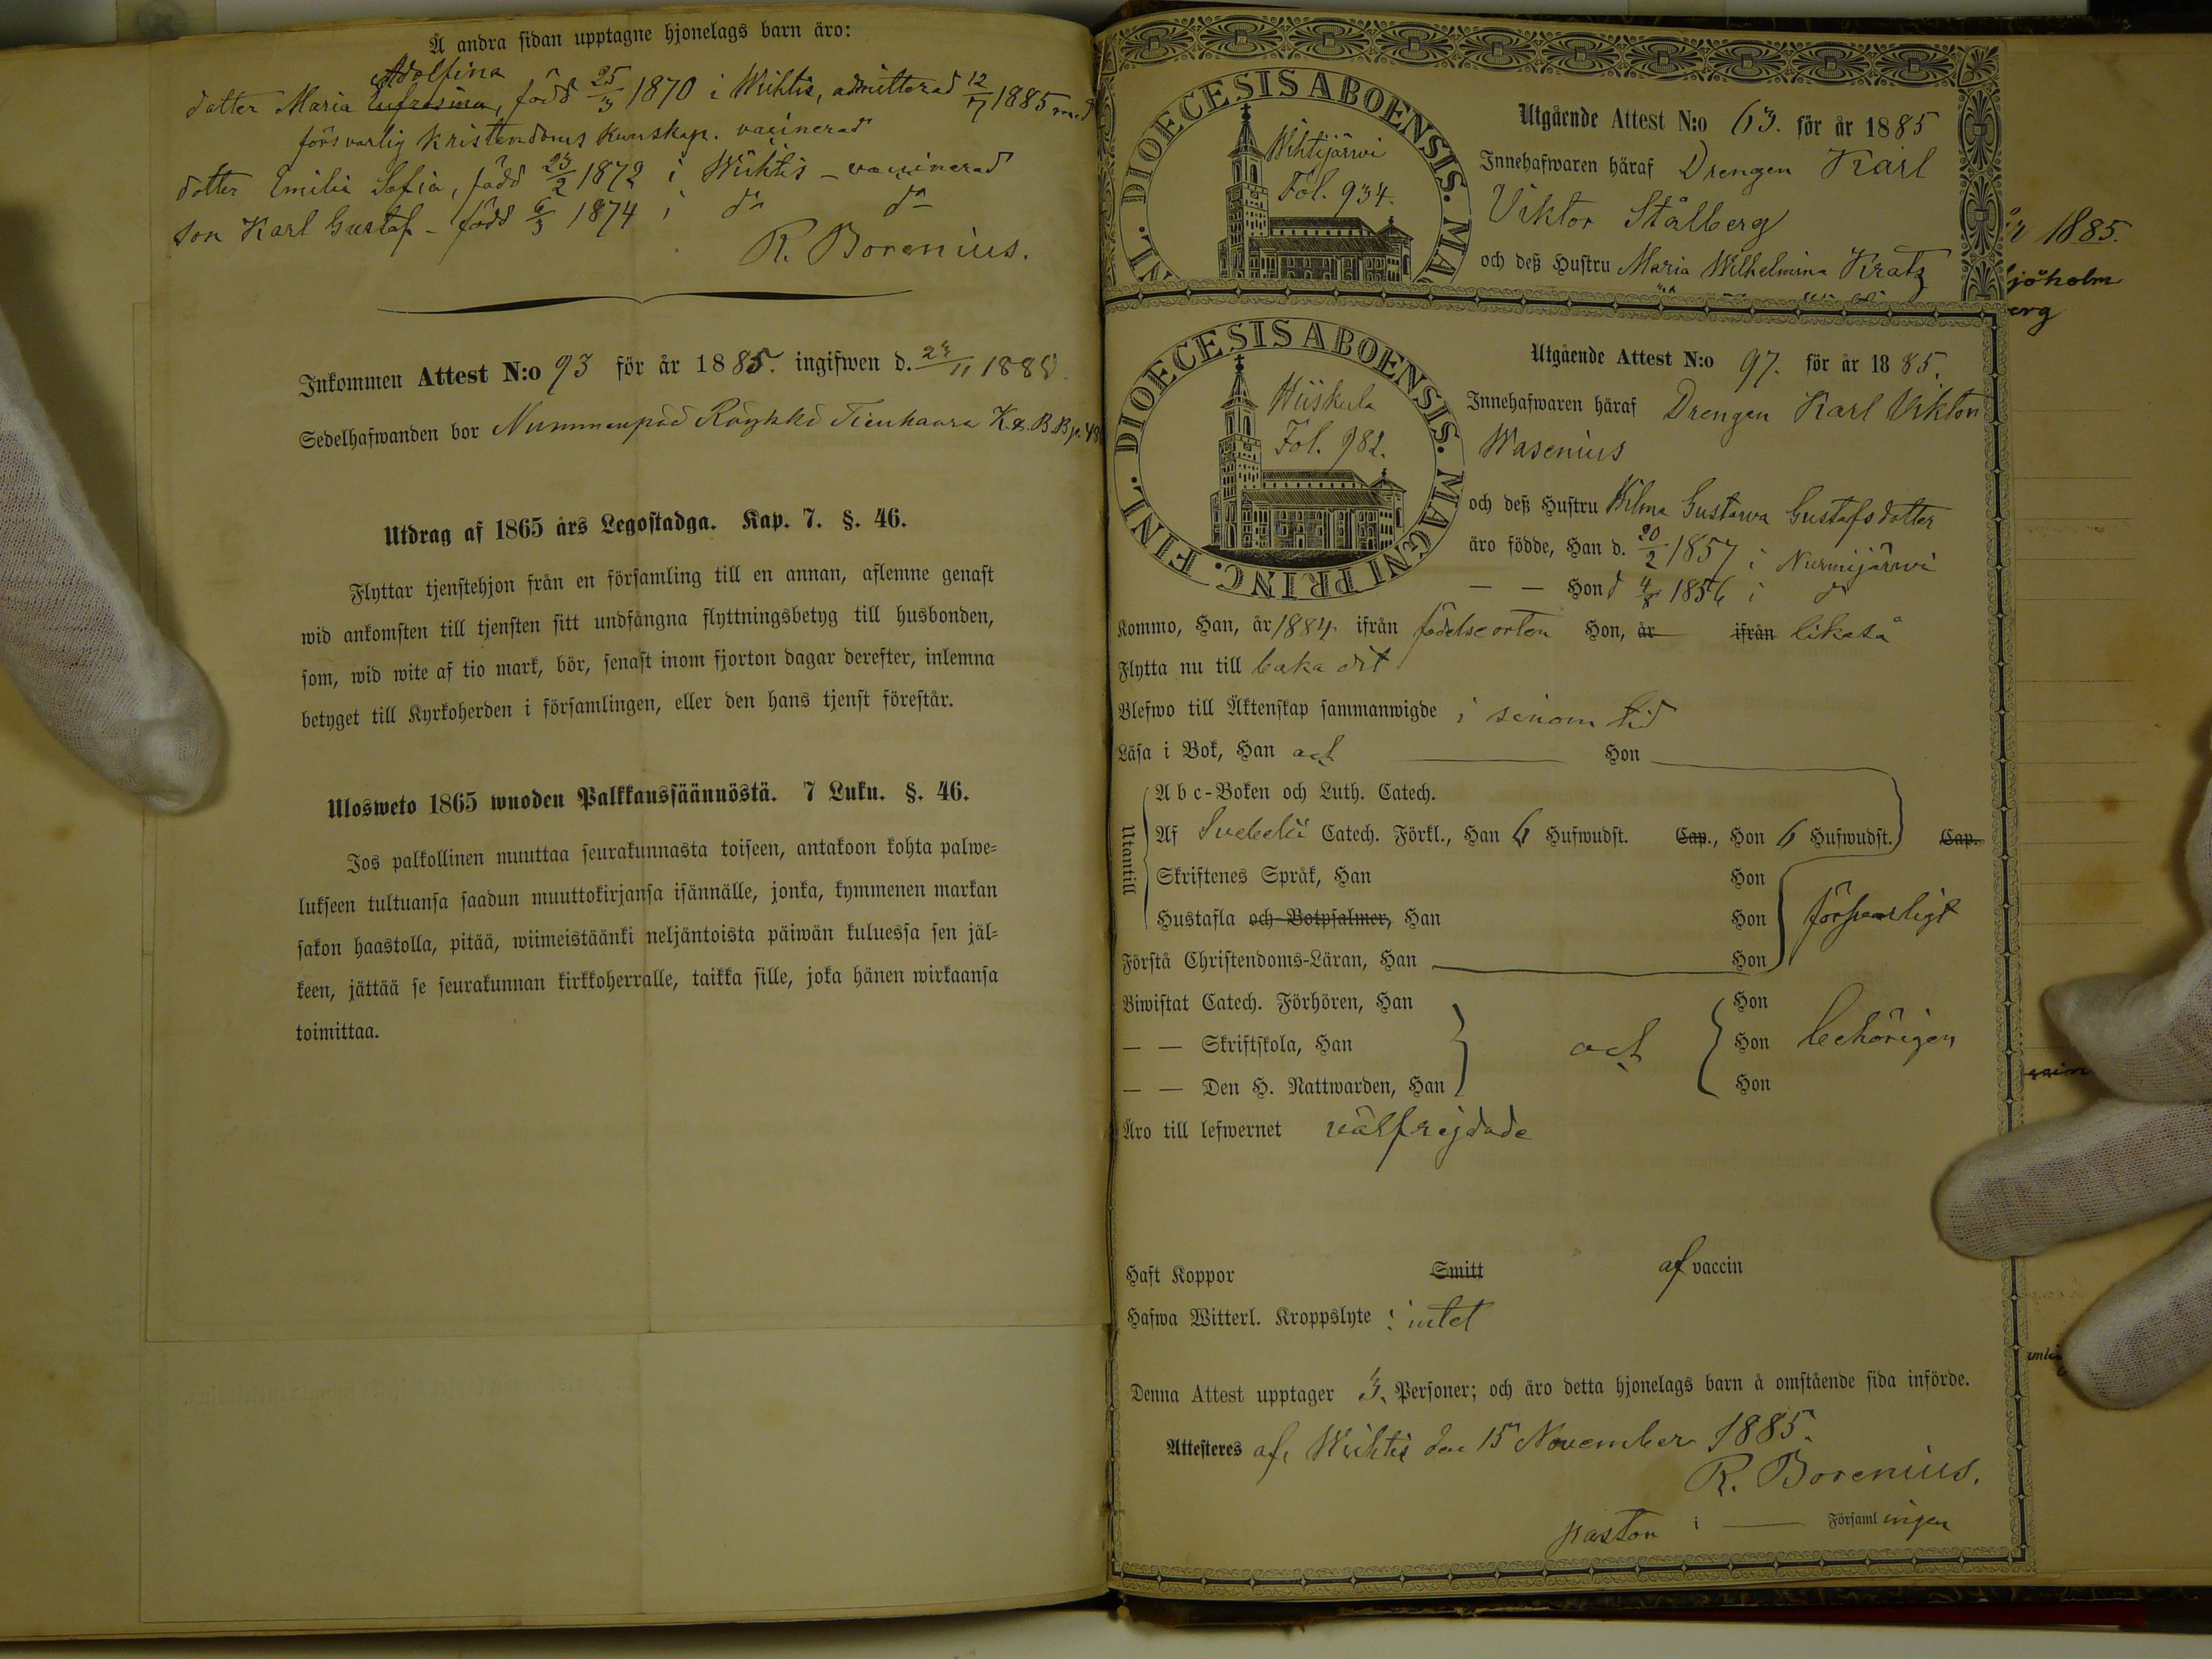 Å andra sidan upptagne hjonelags barn äro:
Adolfina
dotter Maria Eufrosina, född 25/3 1870 i Wichtis, admitterad 12/7 1885 med
försvarlig Kristendoms Kunskap. vaccinerad
dotter Emilia Sofia, född 23/2 1872 i Wichtis – vaccinerad
son Karl Gustaf – född 6/3 1874 i do do
R. Borenius.
Inkommen Attest N:o 93 för år 1885. ingifwen d. 23/11 1885.
Sedelhafwanden bor Nummenpää Röykkä Tienhaara K. & B. B. p.
Utdrag af 1865 års Legostadga. Kap. 7. §. 46.
Flyttar tjenstehjon från en församling till en annan, aflemne genast
wid ankomsten till tjensten sitt undfångna flyttningsbetyg till husbonden,
som, wid wite af tio mark, bör, senast inom fjorton dagar derefter, inlemna
betyget till Kyrkoherden i församlingen, eller den hans tjenst förestår.
Ulosweto 1865 wuoden Palkkaussäännöstä. 7 Luku. §. 46.
Jos palkollinen muuttaa seurakunnasta toiseen, antakoon kohta palwe=
lukseen tultuansa saadun muuttokirjansa isännälle, jonka, kymmenen markan
sakon haastolla, pitää, wiimeistäänki neljäntoista päiwän kuluessa sen jäl=
keen, jättää se seurakunnan kirkkoherralle, taikka sille, joka hänen wirkaansa
toimittaa.
DIOECESIS ABOENSIS. MA
NL.
Wihtijärwi
Fol. 934.
Utgående Attest N:o 63. för år 1885
Innehafwaren häraf Drengen Karl
Viktor Stålberg
och deß Hustru Maria Wilhelmina Kratz
1885.
jöholm
erg
DIOECESIS ABOENSIS. MAGNI PRINC. FINL.
Wiiskula
Fol. 982.
Utgående Attest N:o 97. för år 1885.
Innehafwaren häraf Drengen Karl Viktor
Wasenius
och deß Hustru Wilma Gustava Gustafsdotter
äro födde, Han d. 20/2 1857 i Nurmijärwi
— — Hon d 4/8 1856 i do
Kommo, Han, år 1884 ifrån födelseorten Hon, år ifrån likaså
Flytta nu till baka dit
Blefwo till Äktenskap sammanwigde i sinom tid
Läsa i Bok, Han och Hon
Utantill
Abc-Boken och Luth. Catech.
Af Svebelii Catech. Förkl., Han 6 Hufwudst. Cap., Hon 6 Hufwudst. Cap.
Skriftenes Språk, Han Hon
Hustafla och Botpsalmer, Han Hon försvarligt
Förstå Christendoms-Läran, Han Hon
Biwistat Catech. Förhören, Han Hon
— — Skriftskola, Han och Hon behörigen
— — Den H. Nattwarden, Han Hon
Äro till lefwernet välfrejdade
Haft Koppor Smitt af vaccin
Hafwa Witterl. Kroppslyte : intet
Denna Attest upptager 3. Personer; och äro detta hjonelags barn å omstående sida införde.
Attesteres af, Wichtis den 15 November 1885.
R. Borenius.
pastor i — Församlingen